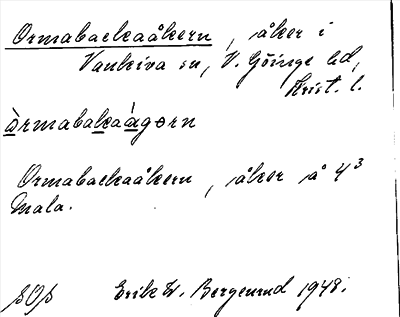 Ormabackaåkern, åker i
Vankiva sn, V. Göinge hd,
Krist. l.
òrmabakaàgərn
Ormabackaåkern, åker å 4³
Mala.
SOS Erik W. Bergenrud 1948.